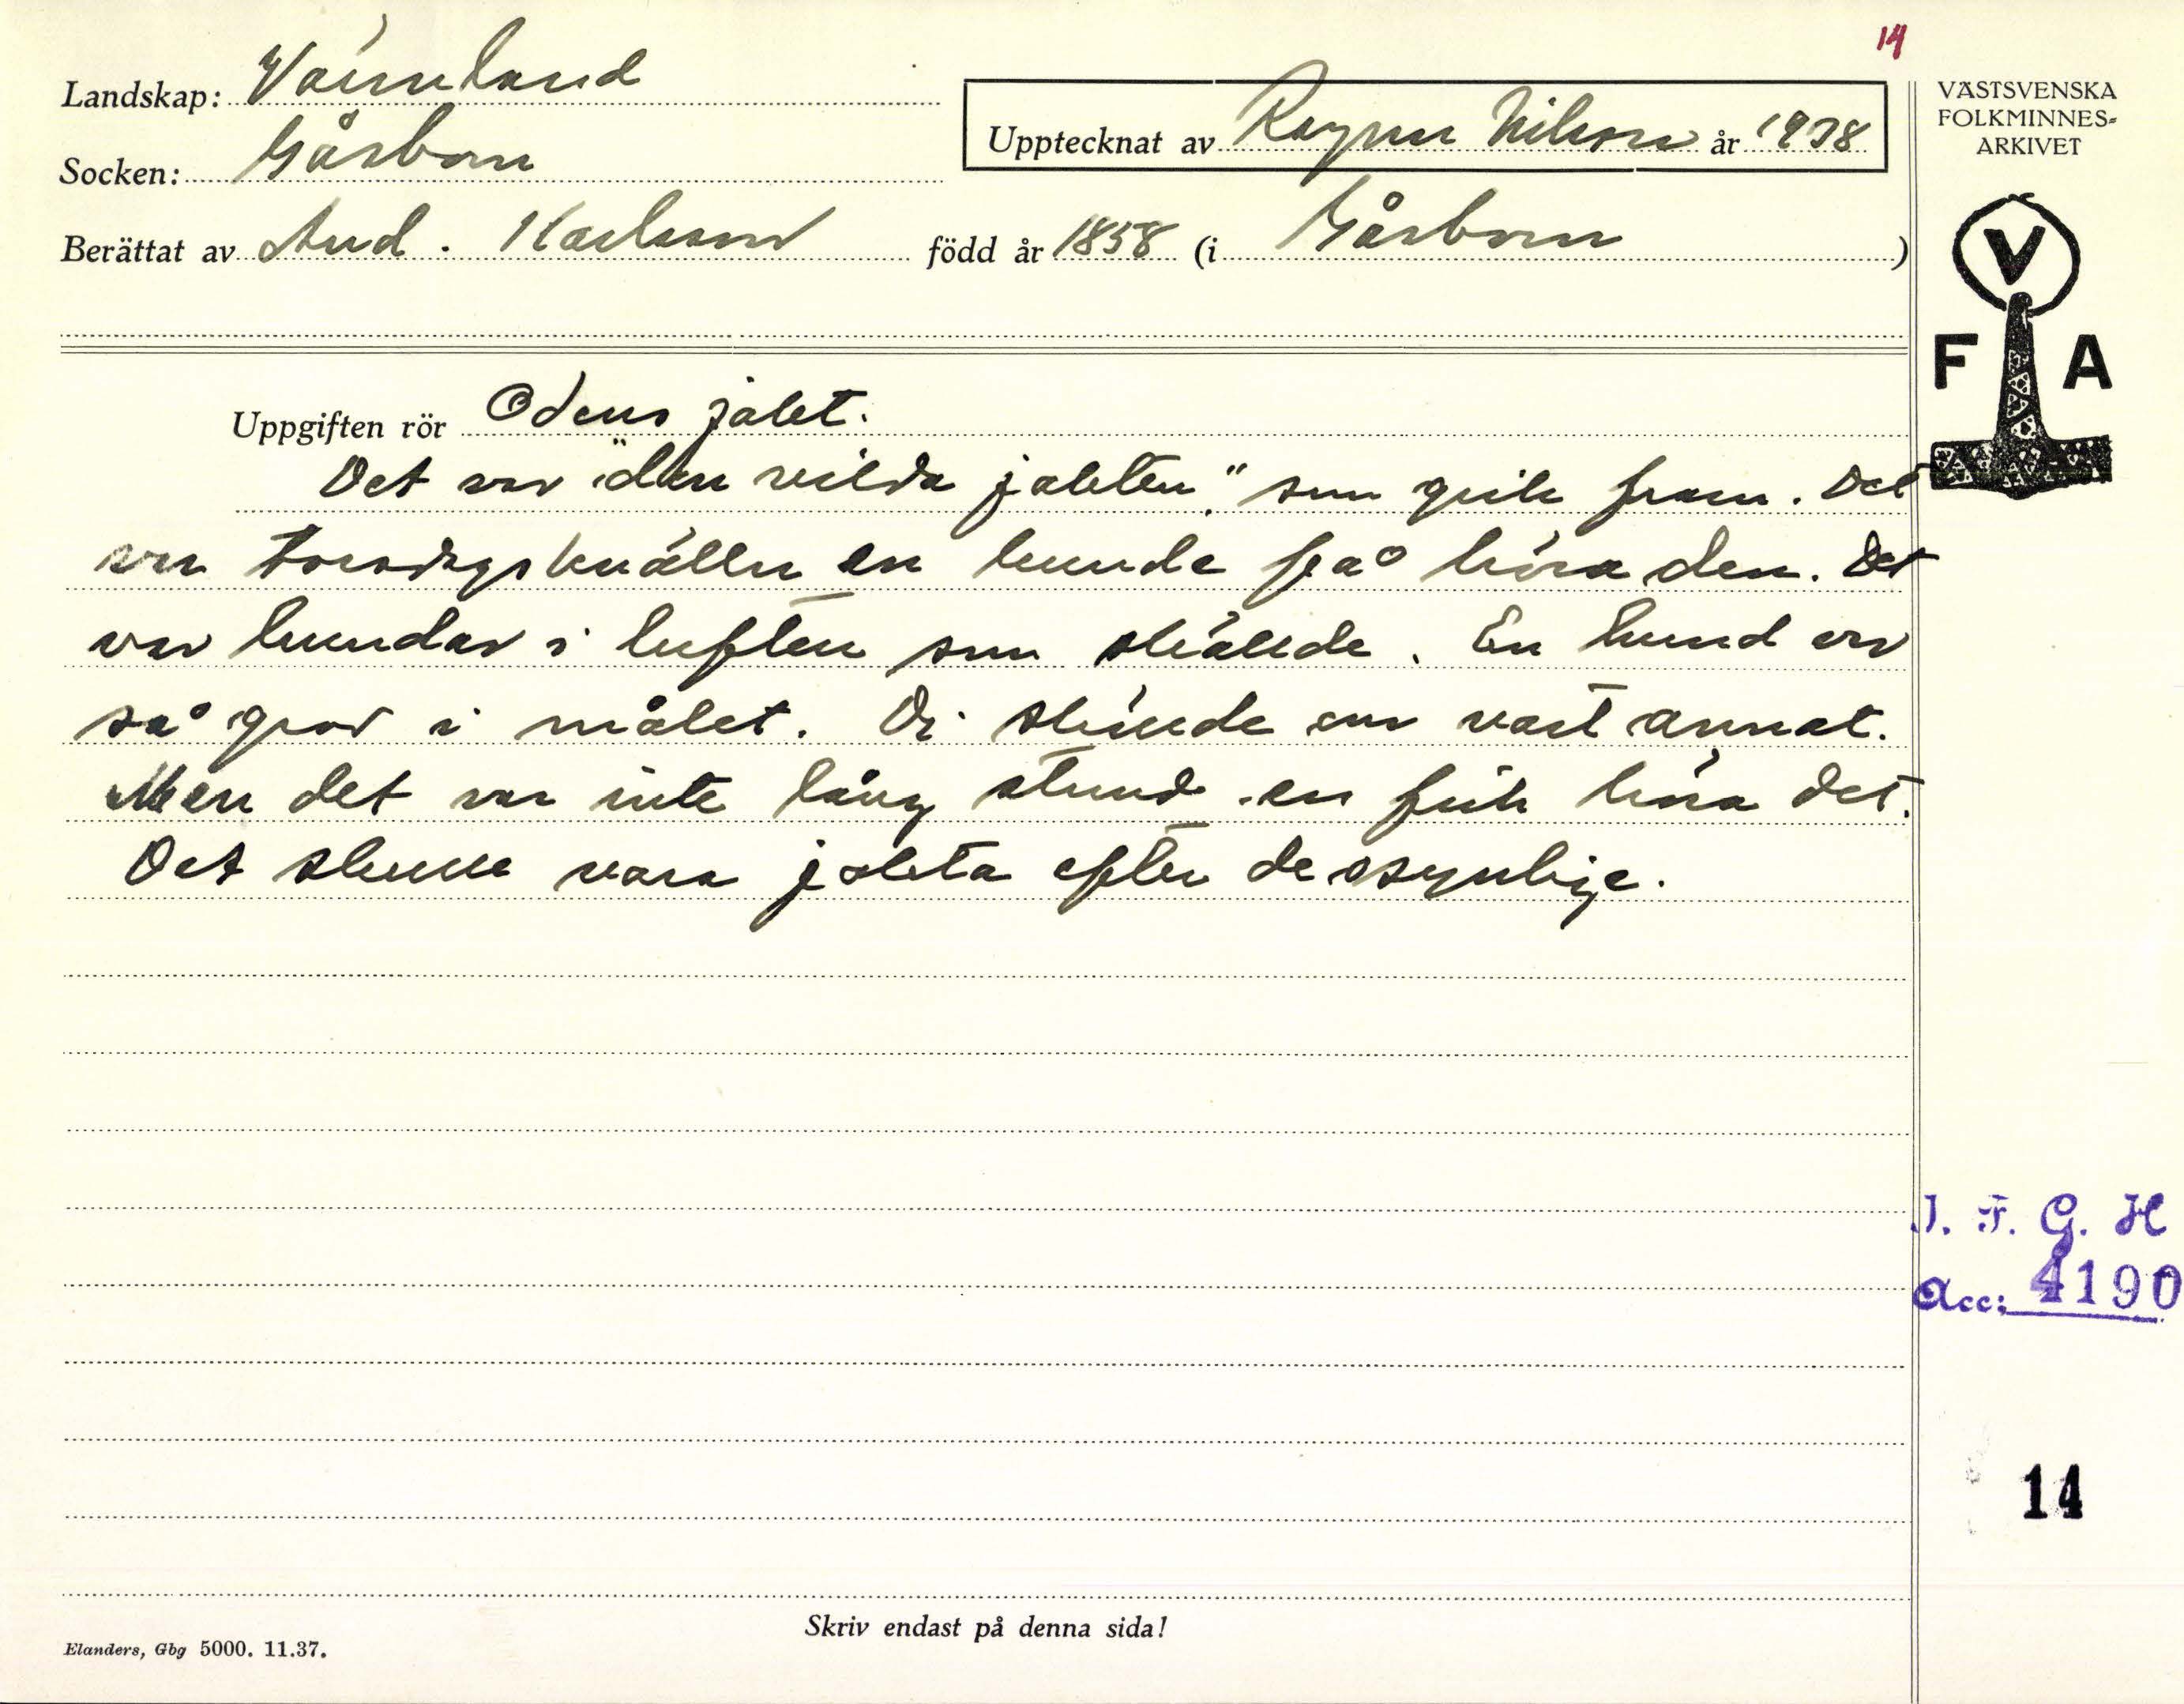 14
Landskap: Värmland
Socken: Gåsborn
Upptecknat av Ragnar Nilsson år 1938
Berättat av And. Karlsson född år 1858 (i Gåsborn)
VÄSTSVENSKA
FOLKMINNES-
ARKIVET
V
F A
Uppgiften rör Odens jakt.
Det var "den vilda jakten" som gick fram. Det
var torsdagskvällar en kunde få höra den. Det
var hundar i luften som skällde. En hund var
så grov i målet. Di skällde om vart annat.
Men det var inte lång stund en fick höra det.
Det skulle vara jakta efter de osynlige.
I. F. G. H
Acc: 4190
14
Skriv endast på denna sida!
Elanders, Gbg 5000. 11.37.